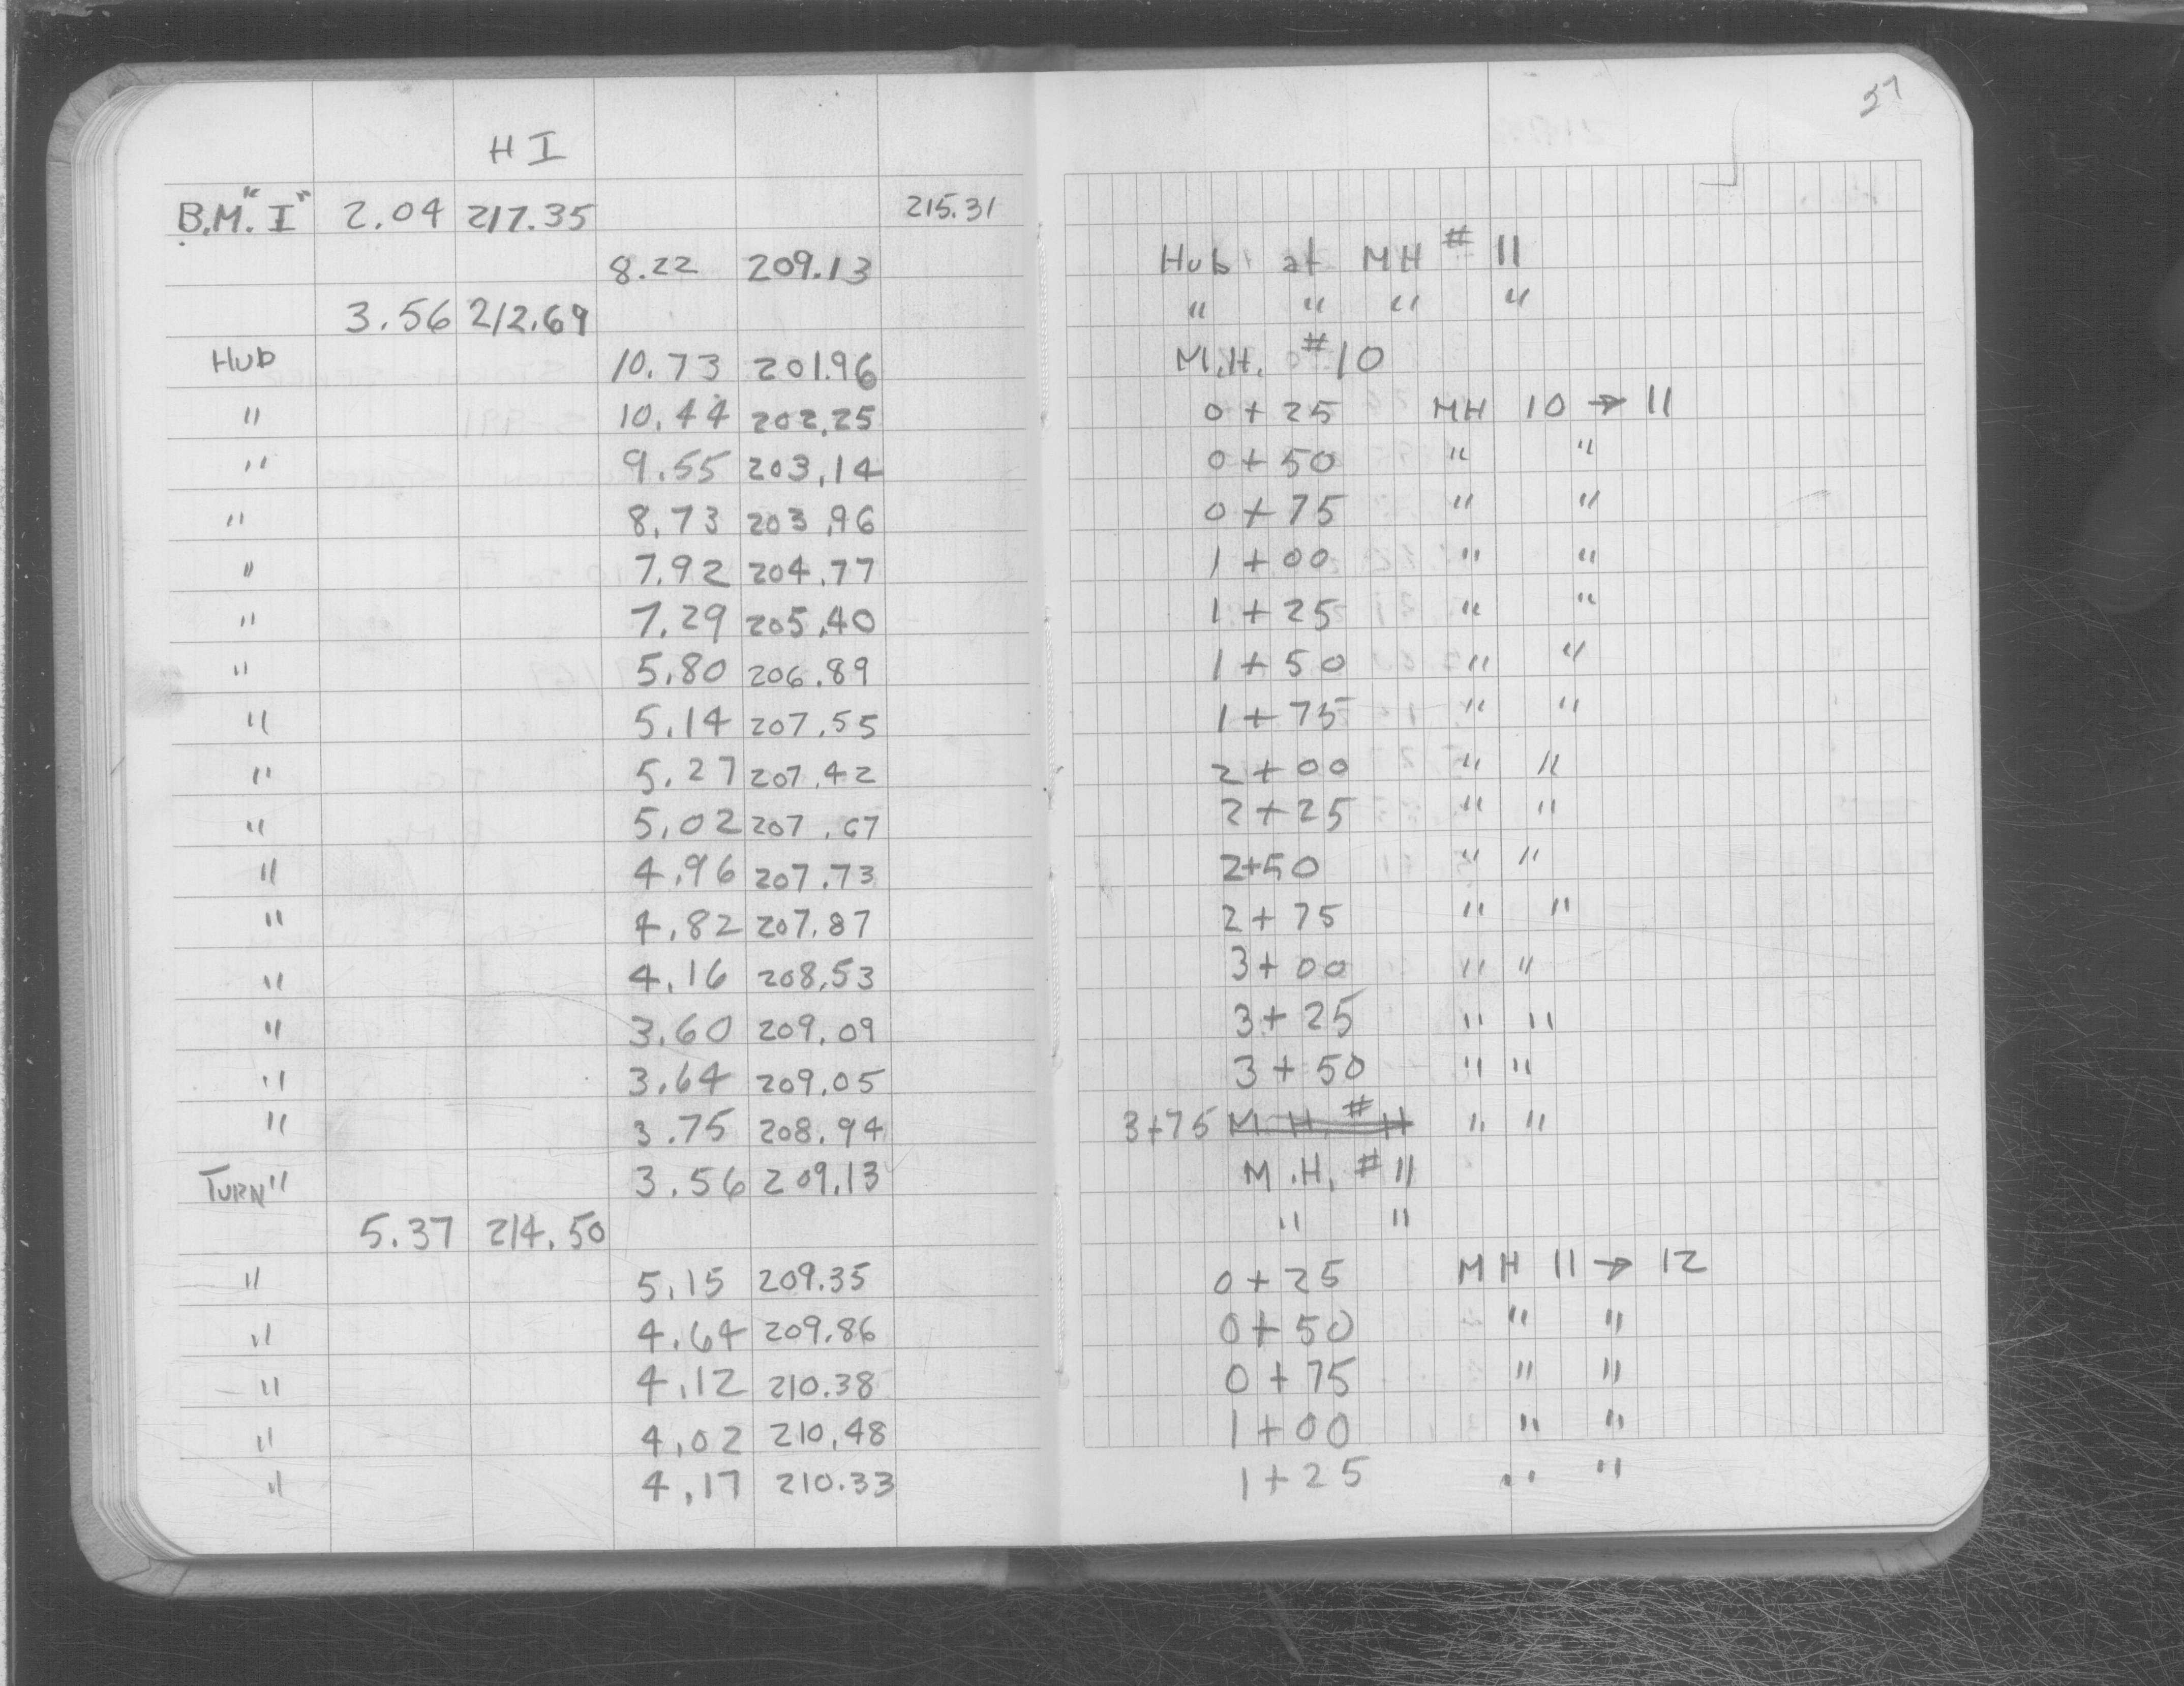 37
H I
B.M. "I" 2.04 217.35 215.31
8.22 209.13 Hub at MH # 11
3.56 212.69 " " " "
Hub 10.73 201.96 M.H. #10
" 10.44 202.25 0+25 MH 10 → 11
" 9.55 203.14 0+50 " "
" 8.73 203.96 0+75 " "
" 7.92 204.77 1+00 " "
" 7.29 205.40 1+25 " "
" 5.80 206.89 1+50 " "
" 5.14 207.55 1+75 " "
" 5.27 207.42 2+00 " "
" 5.02 207.67 2+25 " "
" 4.96 207.73 2+50 " "
" 4.82 207.87 2+75 " "
" 4.16 208.53 3+00 " "
" 3.60 209.09 3+25 " "
" 3.64 209.05 3+50 " "
" 3.75 208.94 3+75 M.H. # 11 " "
TURN " 3.56 209.13 M.H. # 11
5.37 214.50 " "
" 5.15 209.35 0+25 MH 11 → 12
" 4.64 209.86 0+50 " "
" 4.12 210.38 0+75 " "
" 4.02 210.48 1+00 " "
" 4.17 210.33 1+25 " "